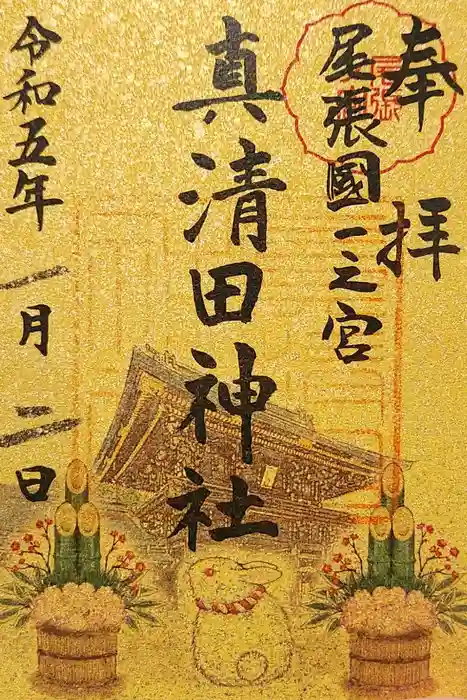 奉拝
尾張國一之宮
真清田神社
令和五年 一月 二日